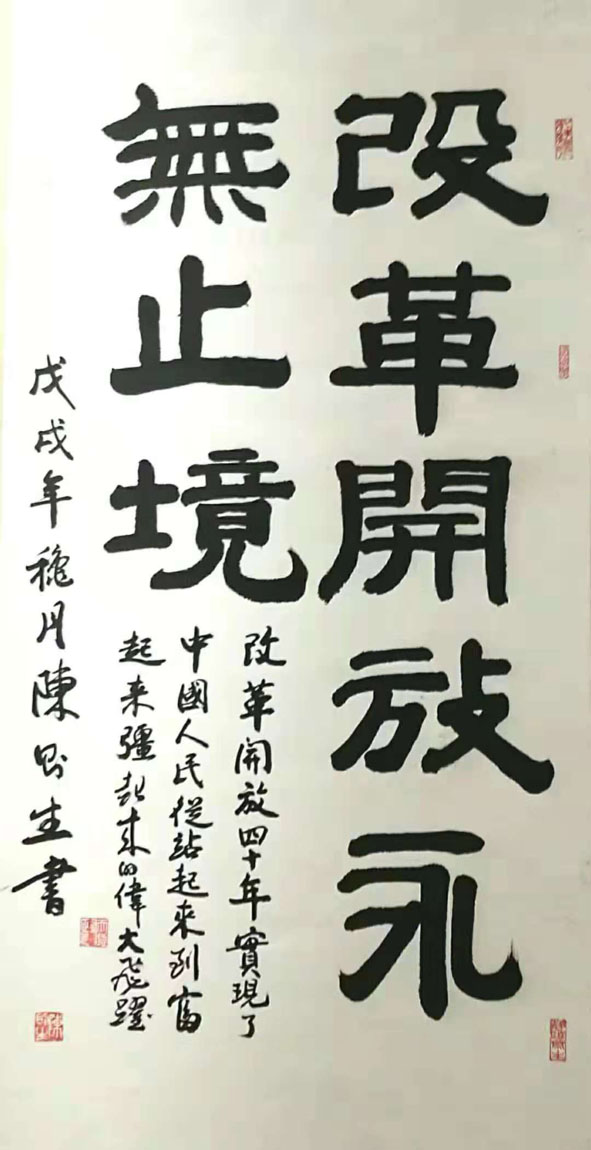 改革開放永
無止境
改革開放四十年實現了
中國人民從站起來到富
起来疆起来的偉大飛躍
戊戌年穐月陳生書